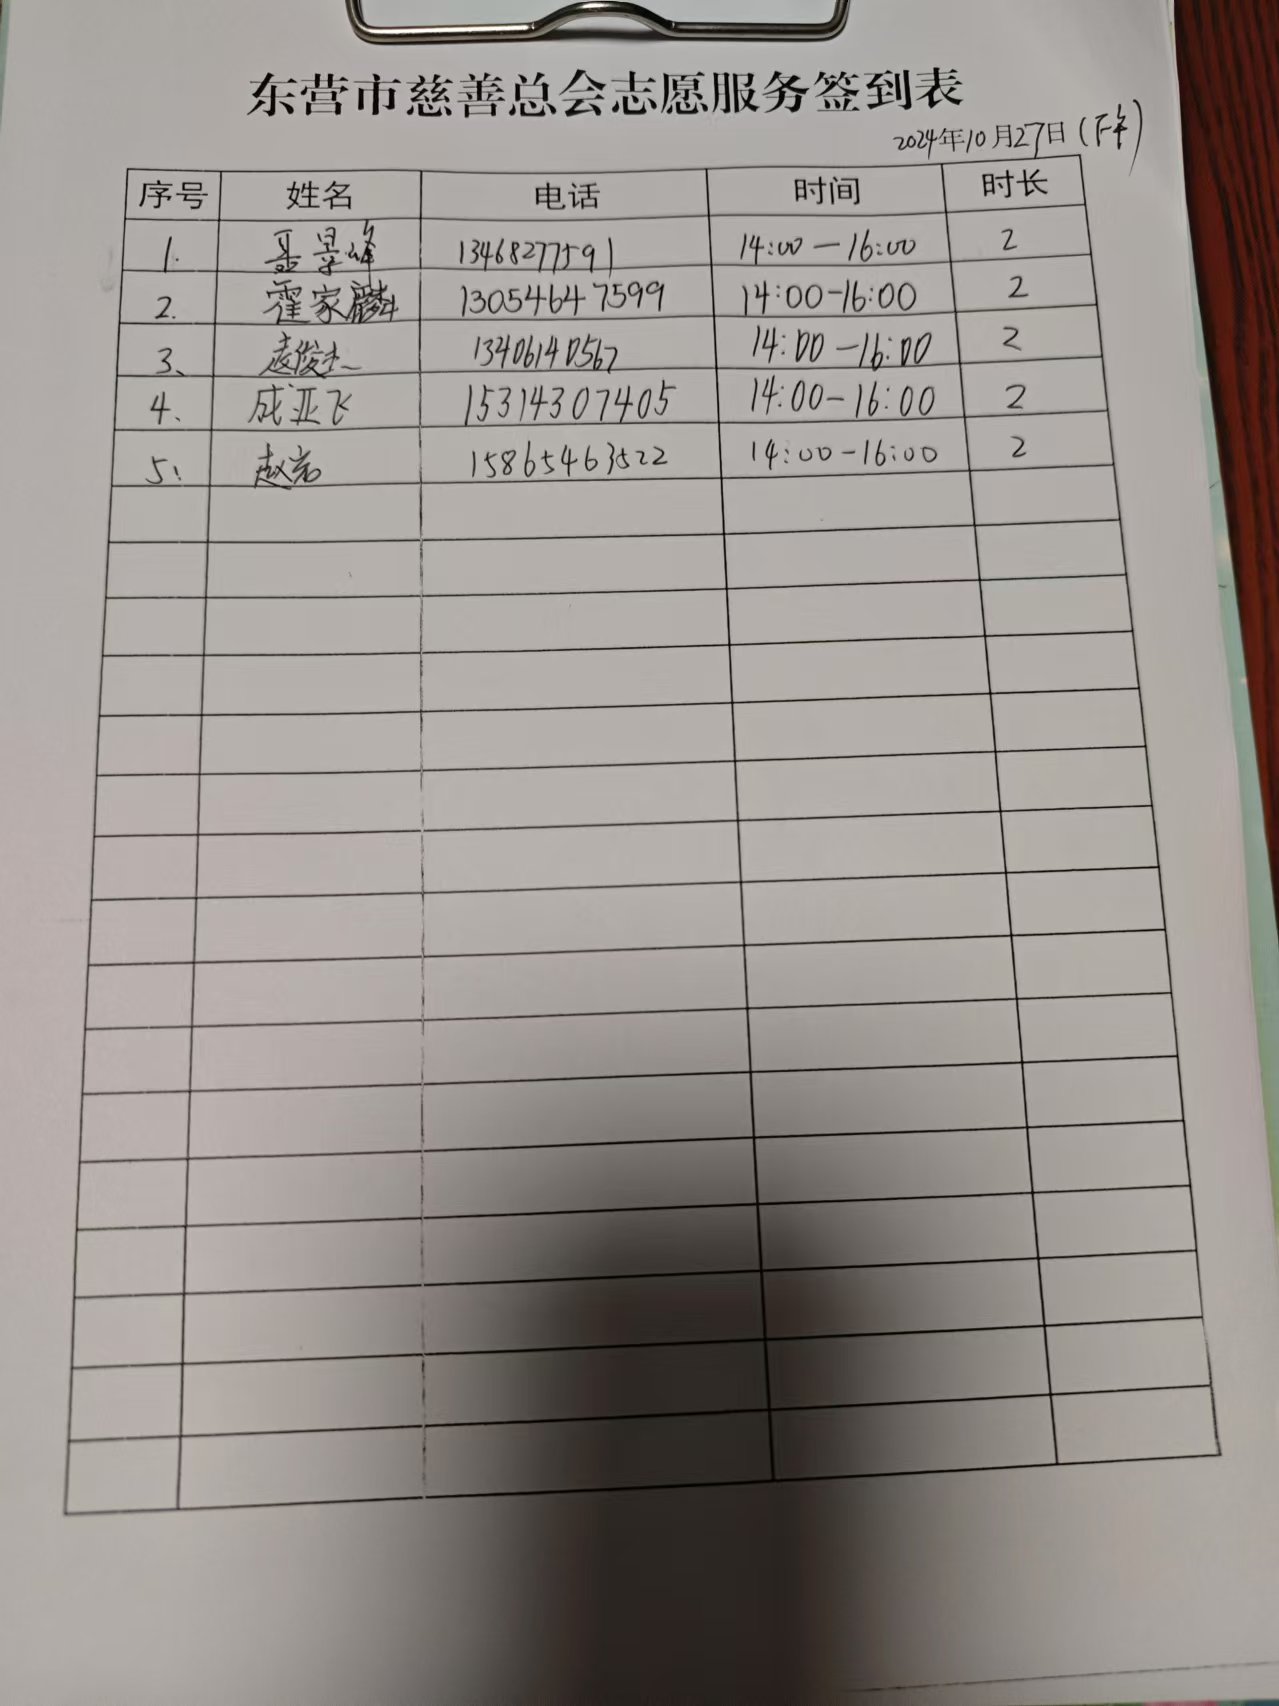 东营市慈善总会志愿服务签到表
2024年10月27日(下午)
序号 姓名 电话 时间 时长
1. 聂昱峰 13468277591 14:00—16:00 2
2. 霍家麟 13054647599 14:00-16:00 2
3、 凌俊杰 13406140567 14:00-16:00 2
4、 成亚飞 15314307405 14:00-16:00 2
5、 赵岩 15865463522 14:00-16:00 2